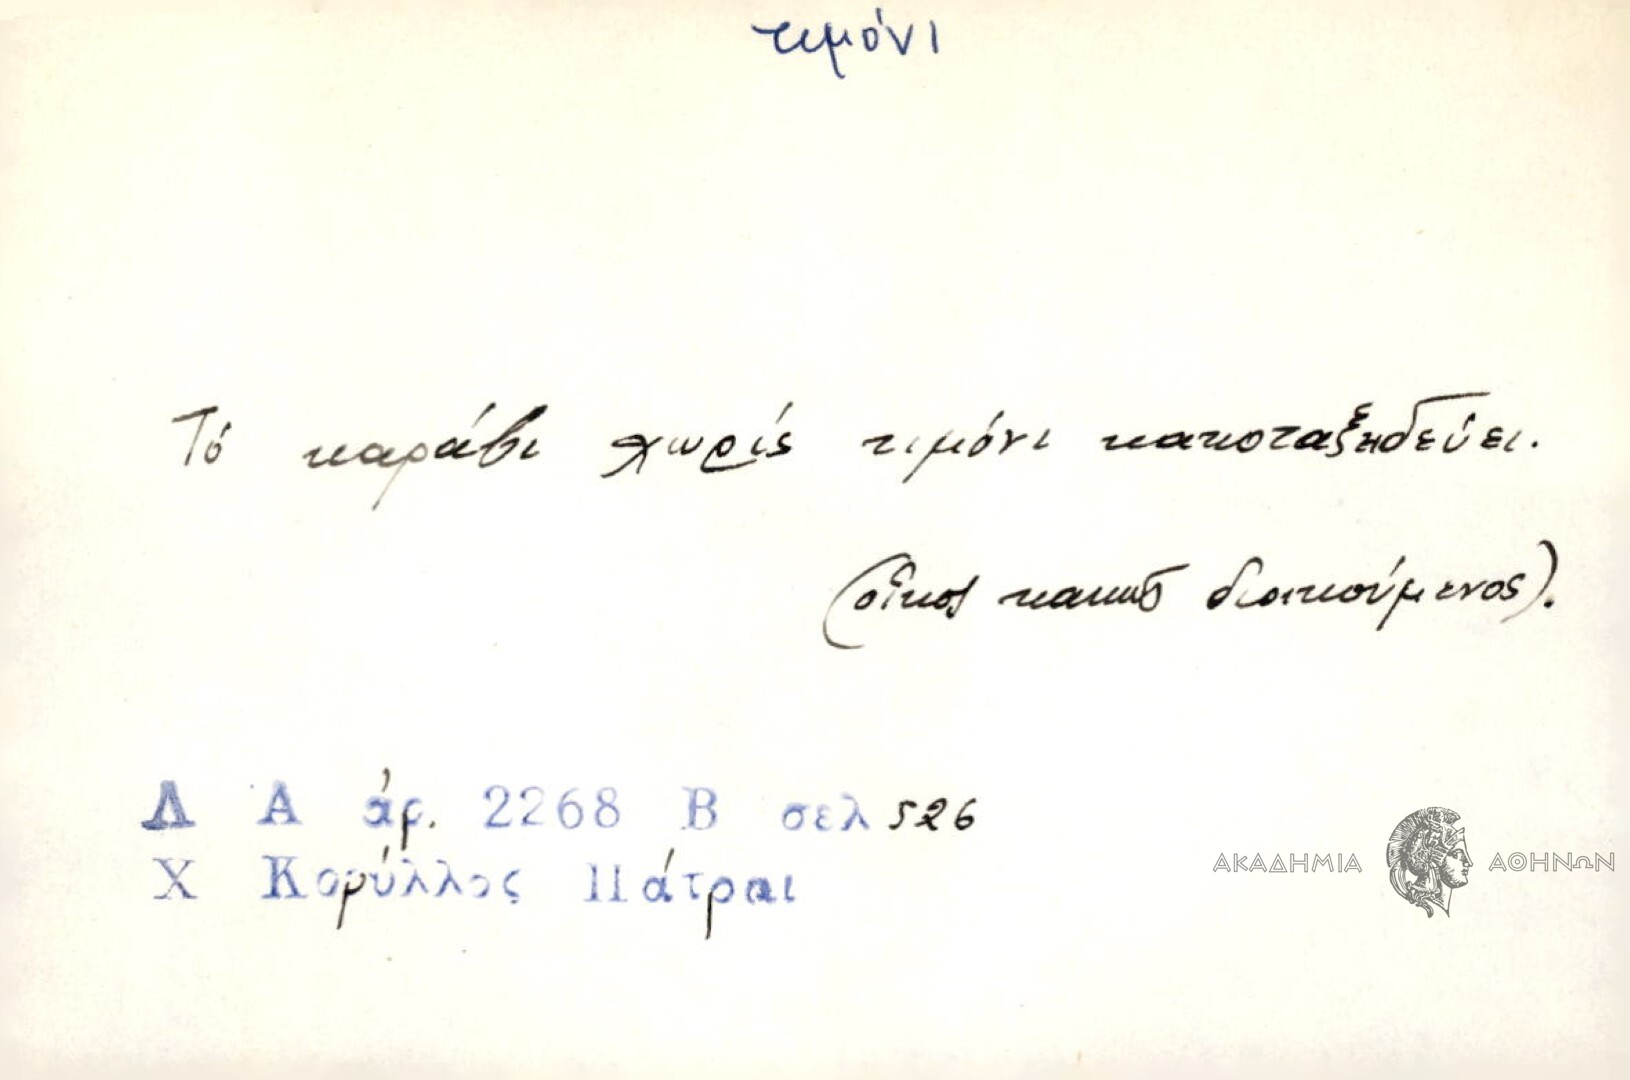 τιμόνι
Τό καράβι χωρίς τιμόνι κακοταξηδεύει.
(οἶκος κακῶς διοικούμενος).
Λ Α ἀρ. 2268 Β σελ 526
Χ Κορύλλος Πάτραι
ΑΚΑΔΗΜΙΑ ΑΘΗΝΩΝ